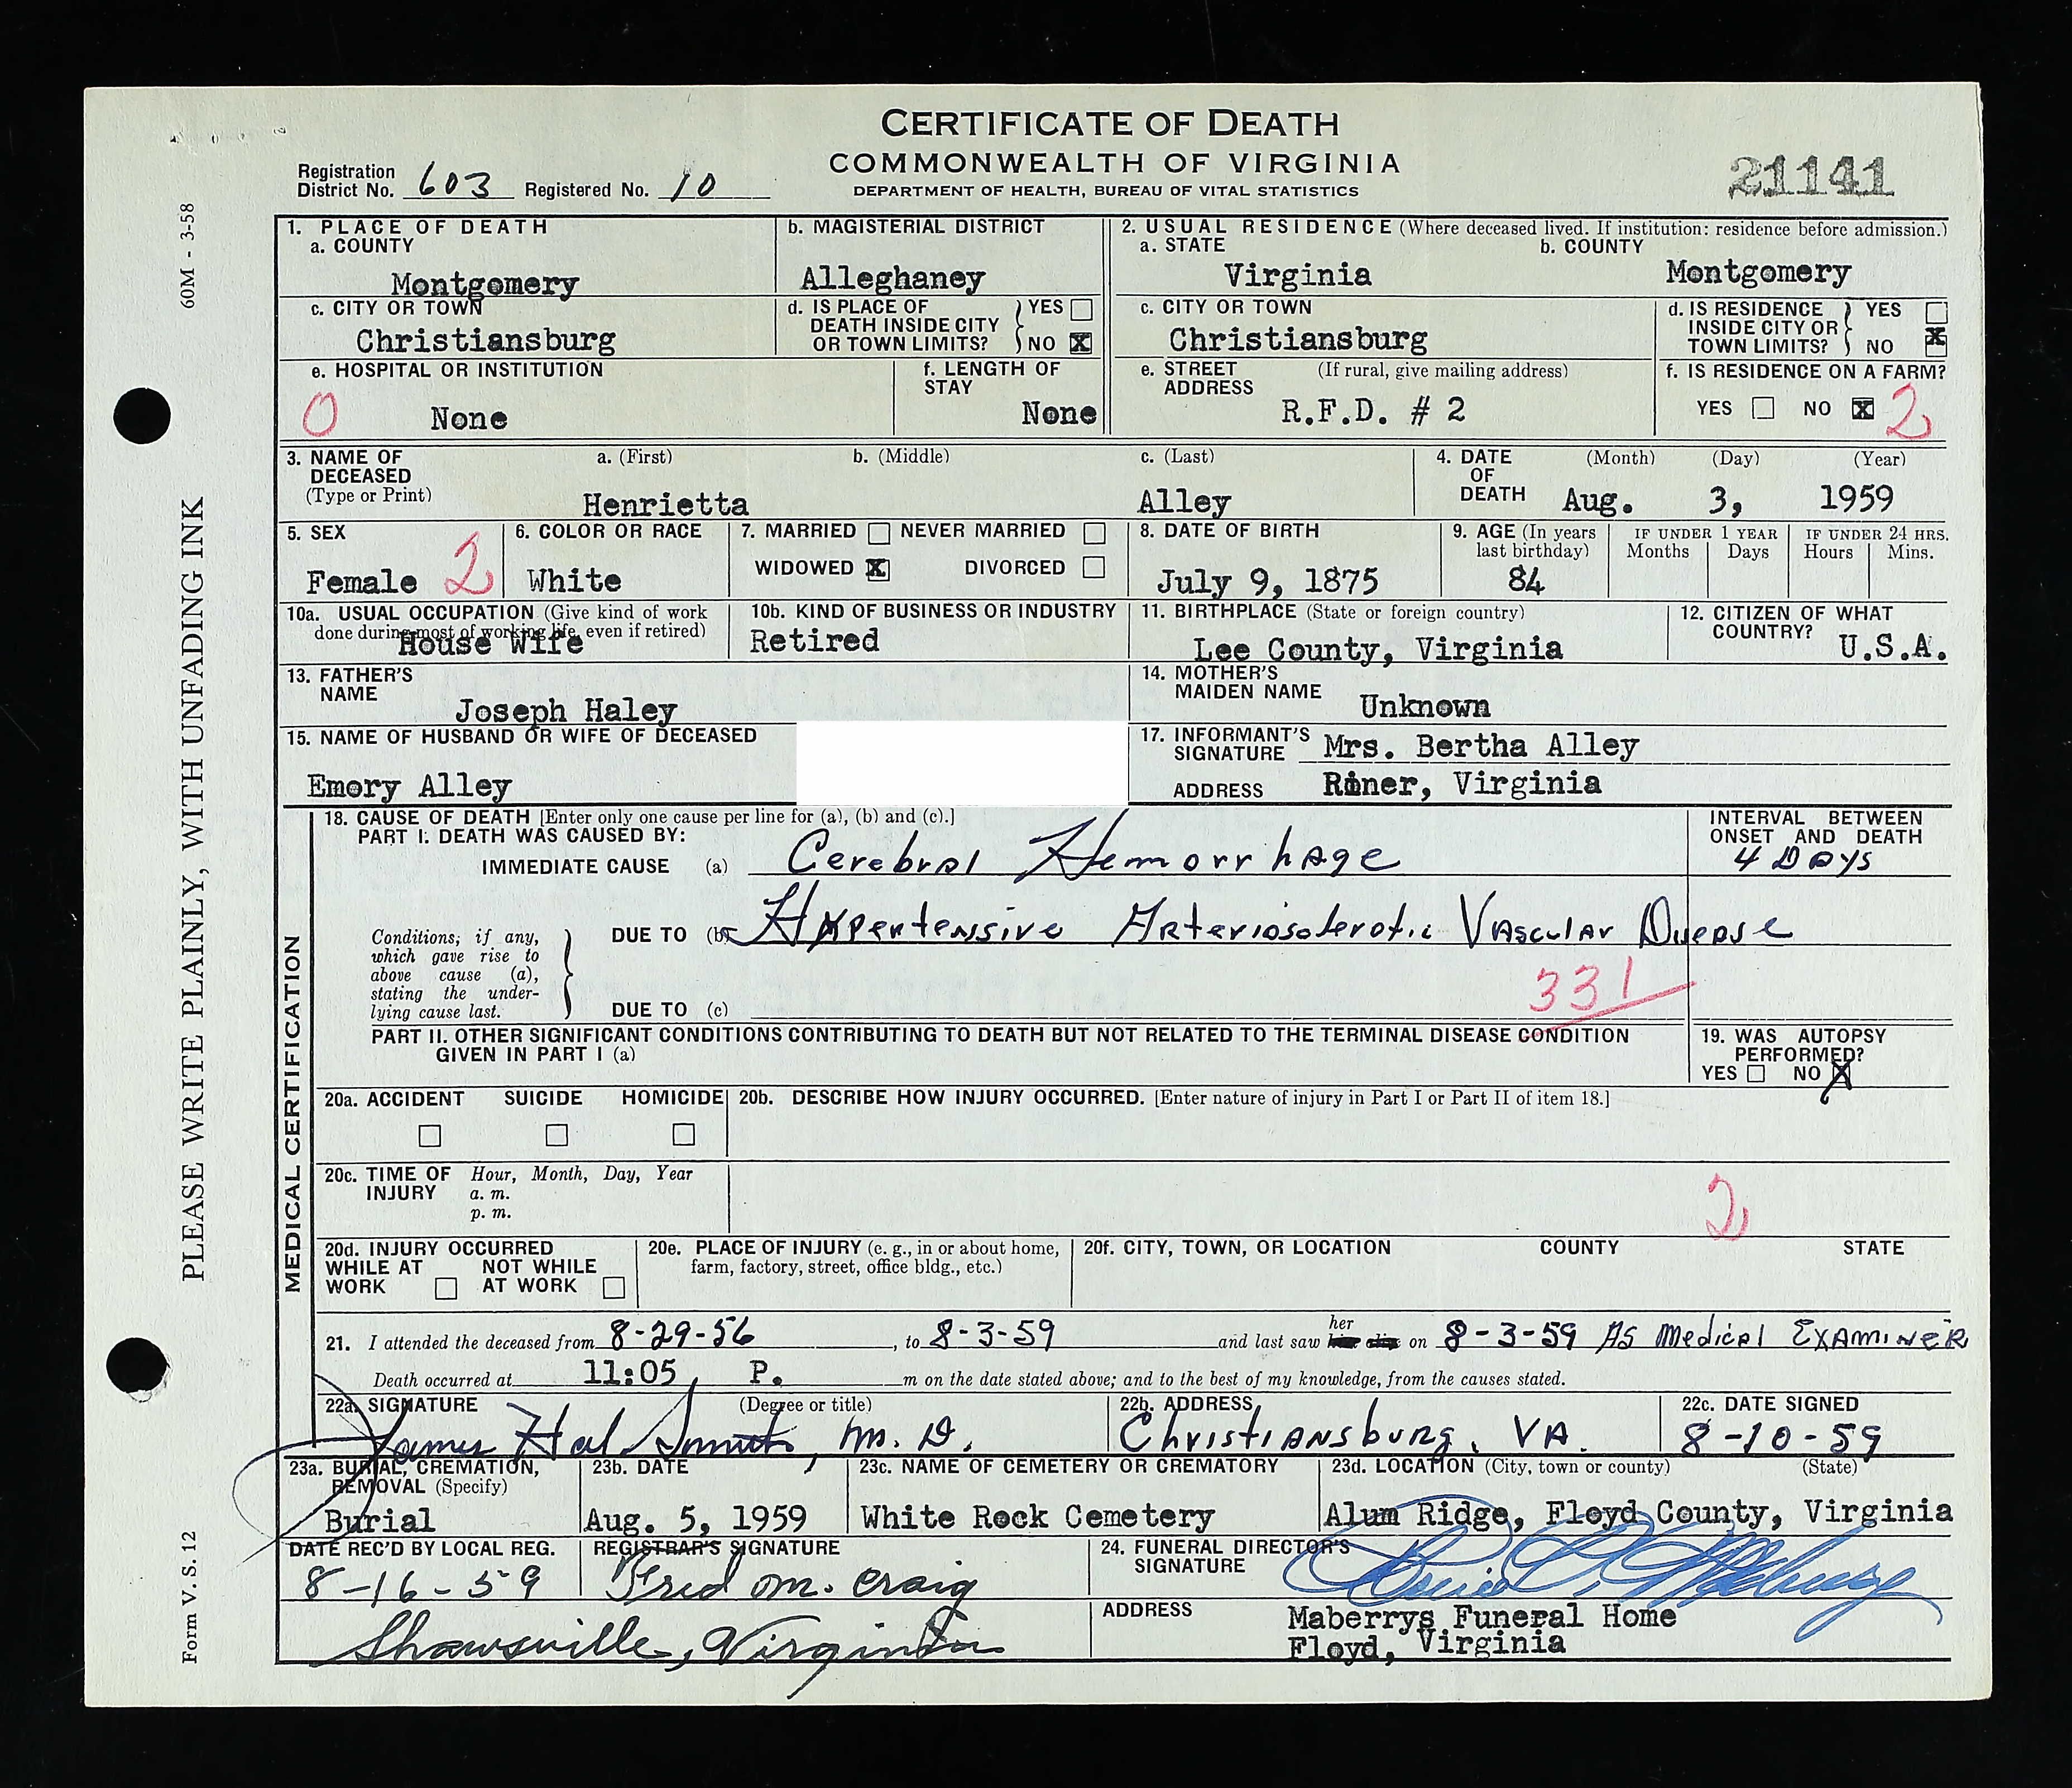 CERTIFICATE OF DEATH
COMMONWEALTH OF VIRGINIA
DEPARTMENT OF HEALTH, BUREAU OF VITAL STATISTICS
21141
Registration
District No. 603 Registered No. 10
60M - 3-58
PLEASE WRITE PLAINLY, WITH UNFADING INK
Form V. S. 12
1. PLACE OF DEATH
a. COUNTY
Montgomery
b. MAGISTERIAL DISTRICT
Alleghaney
2. USUAL RESIDENCE (Where deceased lived. If institution: residence before admission.)
a. STATE
Virginia
b. COUNTY
Montgomery
c. CITY OR TOWN
Christiansburg
d. IS PLACE OF DEATH INSIDE CITY OR TOWN LIMITS? YES NO X
c. CITY OR TOWN
Christiansburg
d. IS RESIDENCE INSIDE CITY OR TOWN LIMITS? YES NO X
e. HOSPITAL OR INSTITUTION
0 None
f. LENGTH OF STAY
None
e. STREET ADDRESS (If rural, give mailing address)
R.F.D. # 2
f. IS RESIDENCE ON A FARM?
YES NO X 2
3. NAME OF DECEASED (Type or Print)
a. (First) b. (Middle) c. (Last)
Henrietta Alley
4. DATE OF DEATH (Month) (Day) (Year)
Aug. 3, 1959
5. SEX
Female 2
6. COLOR OR RACE
White
7. MARRIED NEVER MARRIED
WIDOWED X DIVORCED
8. DATE OF BIRTH
July 9, 1875
9. AGE (In years last birthday)
84
IF UNDER 1 YEAR
Months Days
IF UNDER 24 HRS.
Hours Mins.
10a. USUAL OCCUPATION (Give kind of work done during most of working life, even if retired)
House Wife
10b. KIND OF BUSINESS OR INDUSTRY
Retired
11. BIRTHPLACE (State or foreign country)
Lee County, Virginia
12. CITIZEN OF WHAT COUNTRY?
U.S.A.
13. FATHER'S NAME
Joseph Haley
14. MOTHER'S MAIDEN NAME
Unknown
15. NAME OF HUSBAND OR WIFE OF DECEASED
Emory Alley
17. INFORMANT'S SIGNATURE Mrs. Bertha Alley
ADDRESS Riner, Virginia
MEDICAL CERTIFICATION
18. CAUSE OF DEATH [Enter only one cause per line for (a), (b) and (c).]
PART I. DEATH WAS CAUSED BY:
IMMEDIATE CAUSE (a) Cerebral Hemorrhage
INTERVAL BETWEEN ONSET AND DEATH
4 Days
Conditions, if any, which gave rise to above cause (a), stating the underlying cause last.
DUE TO (b) Hypertensive Arteriosclerotic Vascular Disease
331
DUE TO (c)
PART II. OTHER SIGNIFICANT CONDITIONS CONTRIBUTING TO DEATH BUT NOT RELATED TO THE TERMINAL DISEASE CONDITION
GIVEN IN PART I (a)
19. WAS AUTOPSY PERFORMED?
YES NO X
20a. ACCIDENT SUICIDE HOMICIDE
20b. DESCRIBE HOW INJURY OCCURRED. [Enter nature of injury in Part I or Part II of item 18.]
20c. TIME OF INJURY Hour, Month, Day, Year
a. m.
p. m.
2
20d. INJURY OCCURRED
WHILE AT WORK NOT WHILE AT WORK
20e. PLACE OF INJURY (e. g., in or about home, farm, factory, street, office bldg., etc.)
20f. CITY, TOWN, OR LOCATION COUNTY STATE
21. I attended the deceased from 8-29-56, to 8-3-59 and last saw her on 8-3-59 As Medical Examiner
Death occurred at 11:05 P. m on the date stated above; and to the best of my knowledge, from the causes stated.
22a. SIGNATURE (Degree or title)
James Hal Smith, M.D.
22b. ADDRESS
Christiansburg, VA.
22c. DATE SIGNED
8-10-59
23a. BURIAL, CREMATION, REMOVAL (Specify)
Burial
23b. DATE
Aug. 5, 1959
23c. NAME OF CEMETERY OR CREMATORY
White Rock Cemetery
23d. LOCATION (City, town or county) (State)
Alum Ridge, Floyd County, Virginia
DATE REC'D BY LOCAL REG.
8-16-59
REGISTRAR'S SIGNATURE
Fred M. Craig
Shawsville, Virginia
24. FUNERAL DIRECTOR'S SIGNATURE
ADDRESS
Maberrys Funeral Home
Floyd, Virginia